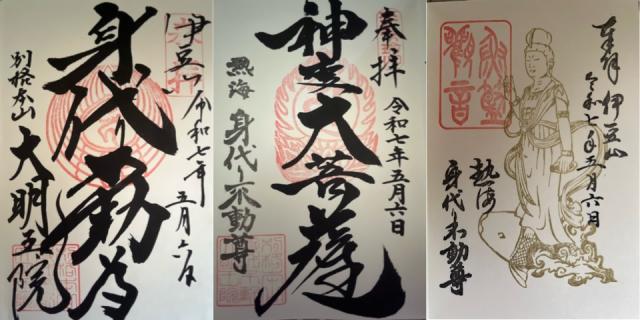 奉拝
伊豆山 令和七年
五月六日
身代り不動尊
別格本山 大明王院
奉拝
令和七年五月六日
神変大菩薩
熱海 身代り不動尊
奉拝 伊豆山
令和七年五月六日
魚籃
観音
熱海
身代り不動尊